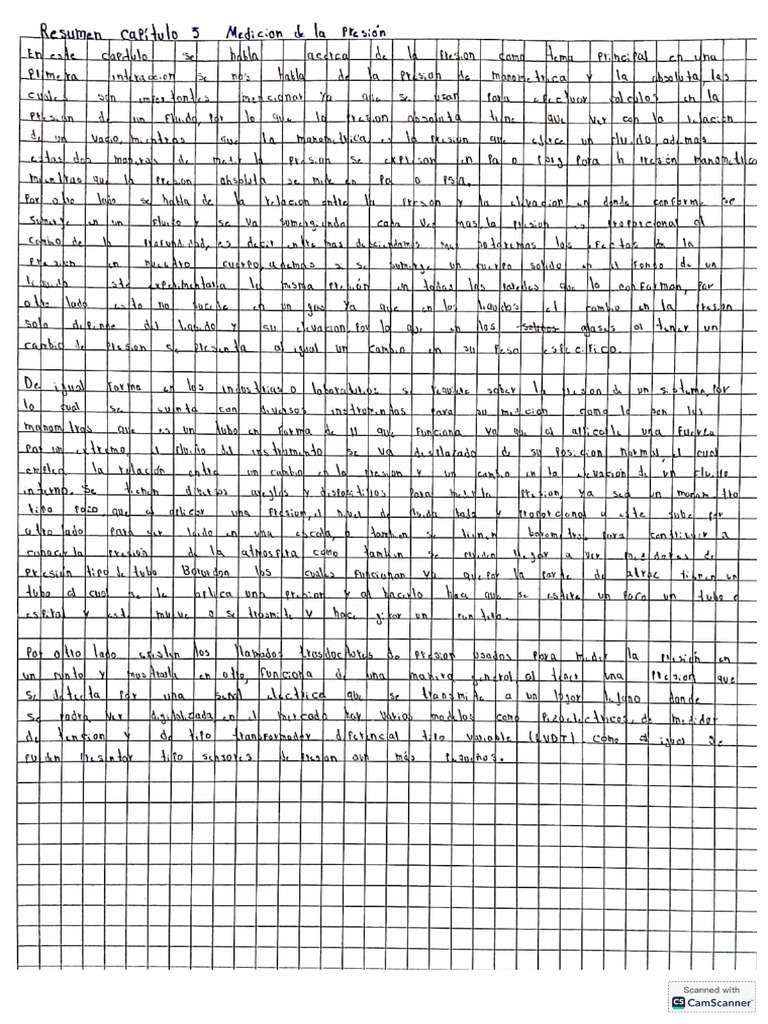 Resumen capítulo 3 Medicion de la Presión
En este capitulo se habla acerca de la Presion como tema Principal en una
Primera interaccion se nos habla de la Presion de manometrica y la absoluta, las
cuales son importantes mencionar ya que se usan Para efectuar calculos en la
Presion de un Fluido, Por lo que la Presion absoluta tiene que ver con la relación
de un vacio, mientras que la manometrica es la presion que ejerce un Fluido, ademas
estas dos maneras de medir la Presion se expresan en Pa o Psig Para la Presión manometrica
mientras que la Presion absoluta se mide en Pa o PSA.
Por otro lado se habla de la relacion entre la Presion y la elevacion en donde conforme se
sumerge en un Fluido y se va sumergiendo cada vez mas, la Presion es Proporcional al
cambio de la Profundidad, es decir entre mas descendamos mas notaremos los efectos de la
Presion en nuestro cuerpo, ademas si se sumerge un cuerpo solido en el Fondo de un
liquido este experimentaria la misma Presión en todas las Paredes que lo conforman, Por
otro lado esto no sucede en un gas ya que en los liquidos el cambio en la Presion
solo depende del liquido y su elevacion, Por lo que en los gases al tener un
cambio de Presion se Presenta al igual un cambio en su Peso especifico.
De igual Forma en las industrias o laboratorios se requiere saber la Presion de un sistema, Por
lo cual se cuenta con diversos instrumentos Para su medicion como lo son los
manometros que es un tubo en Forma de U que Funciona ya que al aplicarle una Fuerza
Por un extremo, el Fluido del instrumento se va desplazado de su Posicion normal, el cual
emplea la relación entre un cambio en la Presion y un cambio en la elevación de un Fluido
interno. Se tienen diversos arreglos y dispositivos Para medir la Presion, ya sea un manometro
tipo Pozo, que al aplicar una Presion, el nivel de fluido baja y Proporcional a este sube Por
otro lado Para ser leido en una escala, o tambien se tienen barometros Para contribuir a
conocer la Presión de la atmosfera como tambien se Pueden llegar a ver medidores de
Presión tipo de tubo Bourdon los cuales Funcionan ya que Por la Parte de atras tienen un
tubo al cual se le aplica una Presion y al hacerlo hace que se estire un Poco un tubo
espiral y este mueve o se trasmite y hace girar un Puntero.
Por otro lado existen los llamados trasductores de Presion usados Para medir la Presión en
un Punto y mostrarla en otro, Funciona de una manera general al tener una Presion que
se detecta Por una señal electrica que se transmite a un lugar lejano donde
se Podra ver digitalizada, en el mercado hay varios modelos como Piezoelectricos, de medidor
de tencion y de tipo transformador diferencial tipo variable (LVDT) como al igual se
Pueden Presentar tipo sensores de Presion aun más Pequeños.
Scanned with
CS CamScanner